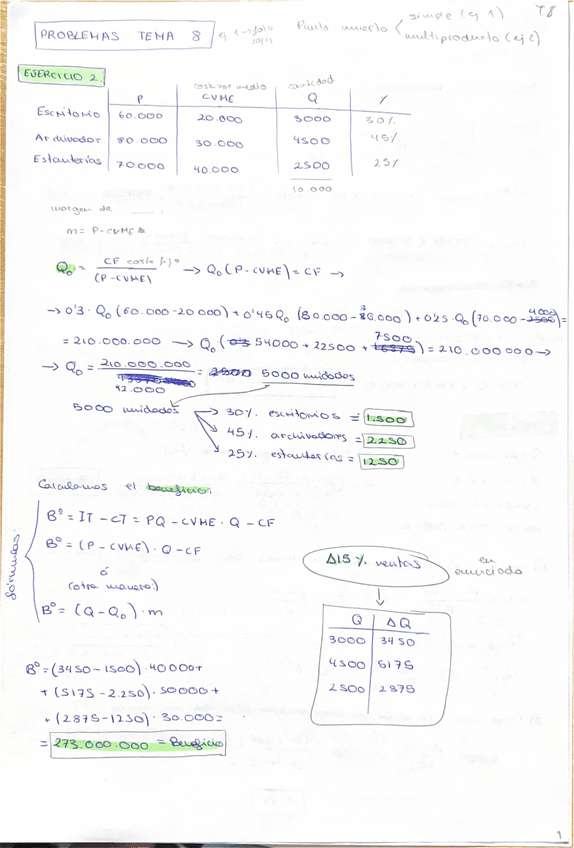 PROBLEMAS TEMA 8
Punto muerto
simple (ej 1)
multiproducto (ej 2)
T8
EJERCICIO 2.
coste var medio
cantidad
P CVME Q %
Escritorio 60.000 20.000 3000 30%
Archivador 80.000 30.000 4500 45%
Estanterías 70.000 40.000 2500 25%
10.000
margen de
m = P-CVME
Q₀ = CF coste fijo / (P-CVME) → Q₀ (P-CVME) = CF →
→ 0'3 · Q₀ (60.000-20.000) + 0'45 Q₀ (80.000-30.000) + 0'25 · Q₀ (70.000-
= 210.000.000 → Q₀ ( 54000 + 22500 + 7500 ) = 210.000000 →
→ Q₀ = 210.000.000 / 42.000 = 5000 unidades
5000 unidades → 30% escritorios = 1.500
→ 45% archivadores = 2.250
→ 25% estanterías = 1250
Calculamos el beneficio:
fórmulas:
Bº = IT - CT = PQ - CVME · Q - CF
Bº = (P - CVME) · Q - CF
ó
(otra manera)
Bº = (Q - Q₀) · m
Δ15% ventas
en enunciado
Q ΔQ
3000 3450
4500 5175
2500 2875
Bº = (3450-1500) · 40000+
+ (5175-2.250) · 50000 +
+ (2875-1250) · 30.000 =
= 273.000.000 = Beneficio
1